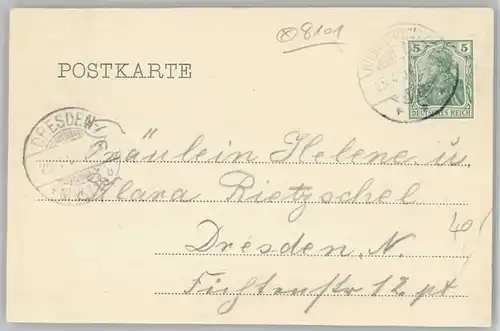 8101
POSTKARTE
5 5
DEUTSCHES REICH
DRESDEN
Fräulein Helene u.
Klara Rietzschel
40
Dresden. N.
Fichtenstr 12 pt